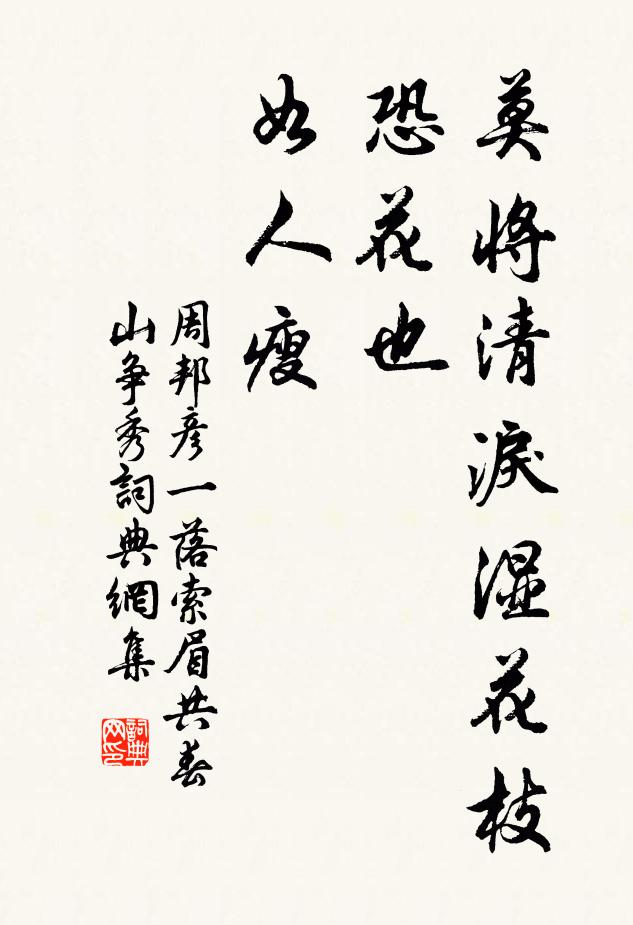 莫將清淚湿花枝
恐花也
如人瘦
周邦彦一落索眉共春
山争秀詞典網集
詞典網印